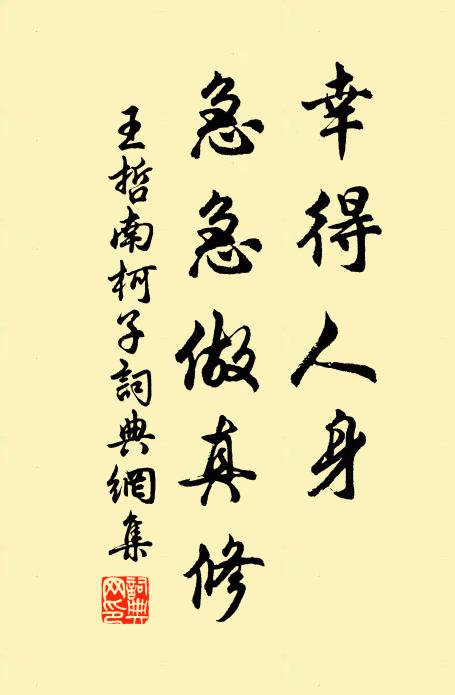 幸得人身
急急做真修
王哲南柯子詞典網集
詞典網印